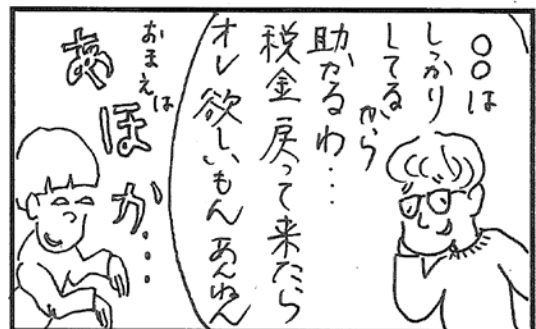 ○○は
しっかり
してる
から
助かるわ...
税金戻って来たら
オレ欲しいもんあんねん
おまえは
あほか...